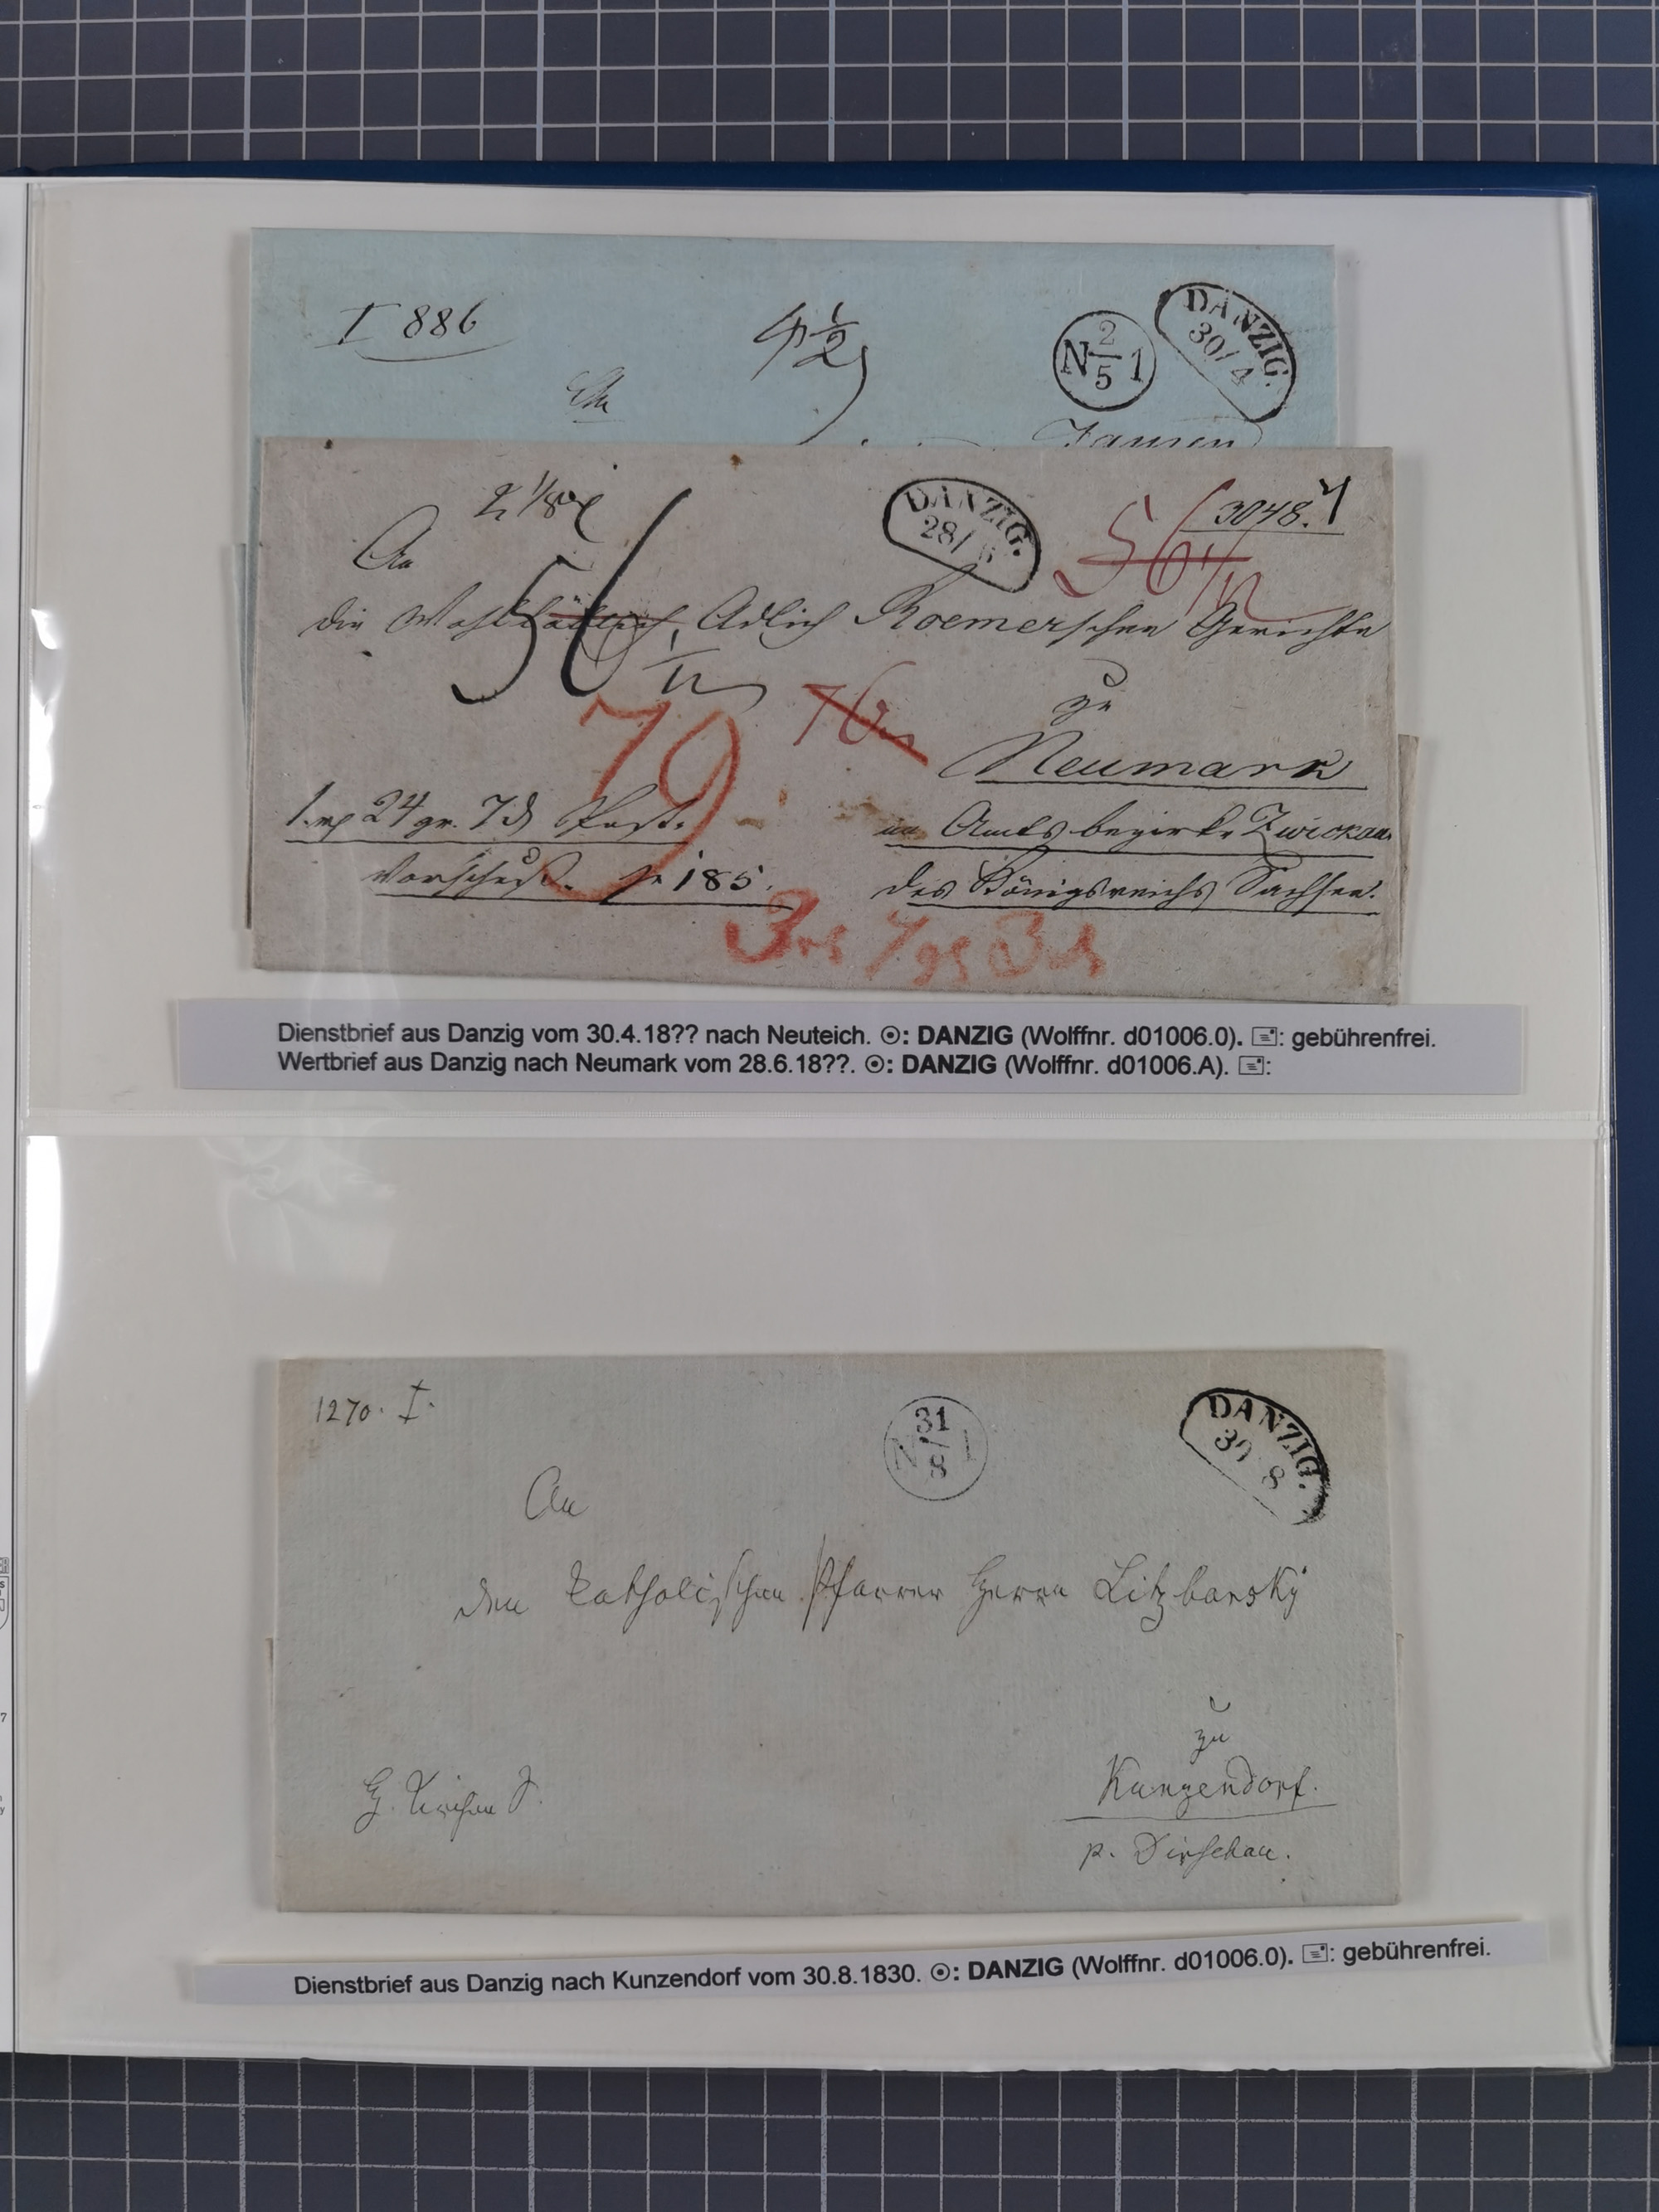 I 886
4 1/2
N 2/5 1
DANZIG.
30/4
An
2 1/8
DANZIG.
28/6
3048.
56 1/12
An
die Wohllöblich, Adlich Roemerschen Gerichte
56 1/12
zu
79
Neumark
1 24 gr. 7 Post-
im Amtsbezirke Zwickau
Vorschuß. 185.
des Königreichs Sachsen.
Dienstbrief aus Danzig vom 30.4.18?? nach Neuteich. ⊙: DANZIG (Wolffnr. d01006.0). 🖃: gebührenfrei.
Wertbrief aus Danzig nach Neumark vom 28.6.18??. ⊙: DANZIG (Wolffnr. d01006.A). 🖃:
1270. I.
31
N / 1
8
DANZIG.
30 8
An
den katholischen Pfarrer Herrn Litzbarsky
zu
Kunzendorf.
p. Dirschau.
Dienstbrief aus Danzig nach Kunzendorf vom 30.8.1830. ⊙: DANZIG (Wolffnr. d01006.0). 🖃: gebührenfrei.